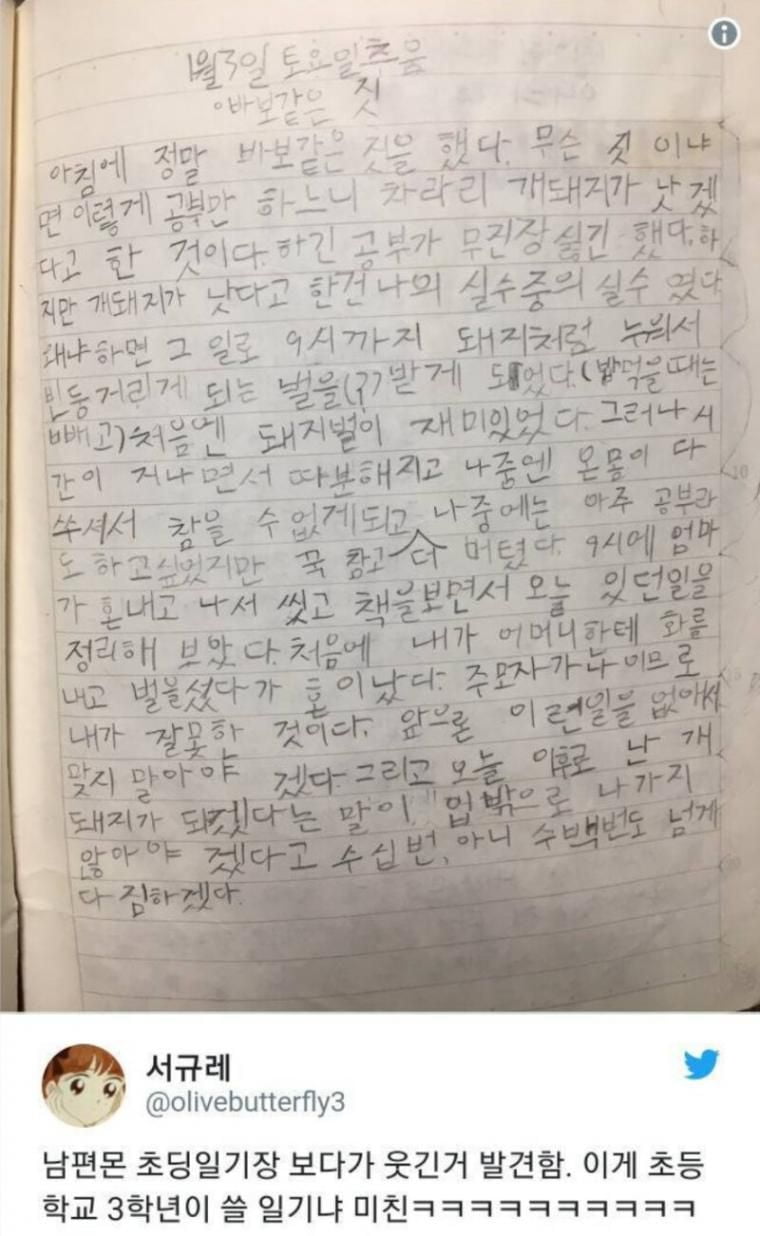 1월3일 토요일 추움
바보같은 짓
아침에 정말 바보같은 짓을 했다. 무슨 짓 이냐
면 이렇게 공부만 하느니 차라리 개돼지가 낫겠
다고 한 것이다. 하긴 공부가 무진장 싫긴 했다. 하
지만 개돼지가 낫다고 한건 나의 실수중의 실수 였다
왜냐하면 그 일로 9시까지 돼지처럼 누워서
빈둥거리게 되는 벌을(?)받게 되었다.(밥먹을때는
빼고)처음엔 돼지벌이 재미있었다. 그러나 시
간이 지나면서 따분해지고 나중엔 온몸이 다
쑤셔서 참을 수 없게되고 나중에는 아주 공부라
도 하고싶었지만 꾹 참고 더 버텼다. 9시에 엄마
가 혼내고 나서 씻고 책을보면서 오늘 있던일을
정리해 보았다. 처음에 내가 어머니한테 화를
내고 벌을섰다가 혼이났다. 주모자가 나 이므로
내가 잘못한 것이다. 앞으론 이런일을 없애서
맞지 말아야 겠다. 그리고 오늘 이후로 난 개
돼지가 되겠다는 말이 입밖으로 나가지
않아야 겠다고 수십번, 아니 수백번도 넘게
다짐하겠다.
서규레
@olivebutterfly3
남편몬 초딩일기장 보다가 웃긴거 발견함. 이게 초등
학교 3학년이 쓸 일기냐 미친ㅋㅋㅋㅋㅋㅋㅋㅋㅋㅋㅋ